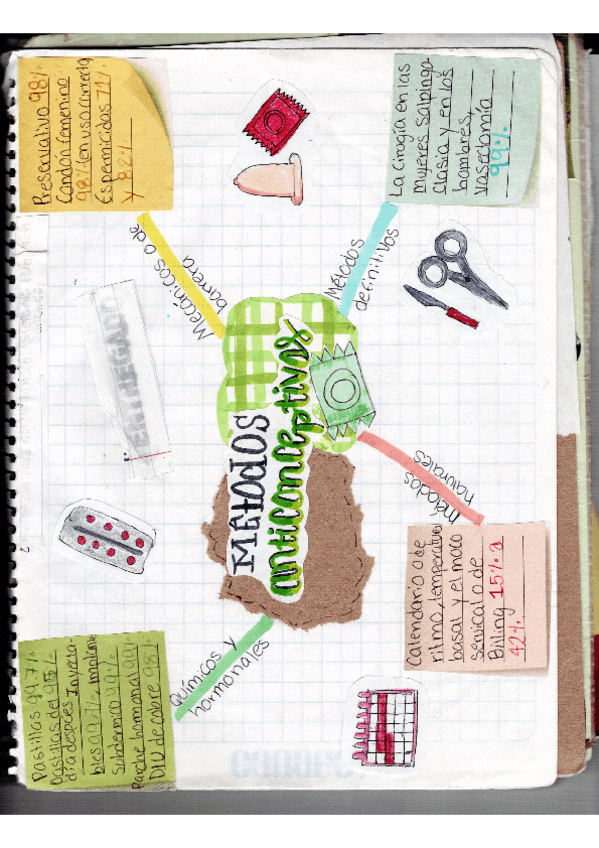 Métodos
anticonceptivos
Mecánicos o de
barrera
Preservativo 98%
Condón femenino
98% en uso correcto
Espermicidas 71%
y 82%
Métodos
definitivos
La Cirogía en las
mujeres salpingo
clasia y en los
hombres,
vasectomía
99%
Métodos
naturales
Calendario o de
ritmo, temperatura
basal y el moco
servical o de
Billing 15% a
42%
Químicos y
hormonales
Pastillas 99.7%
Pastillas del 95%
día después Inyecta-
bles 99.7% Implante
Subdermico 99%
Parche hormonal 99%
DIU de cobre 98%
ENTREGADO